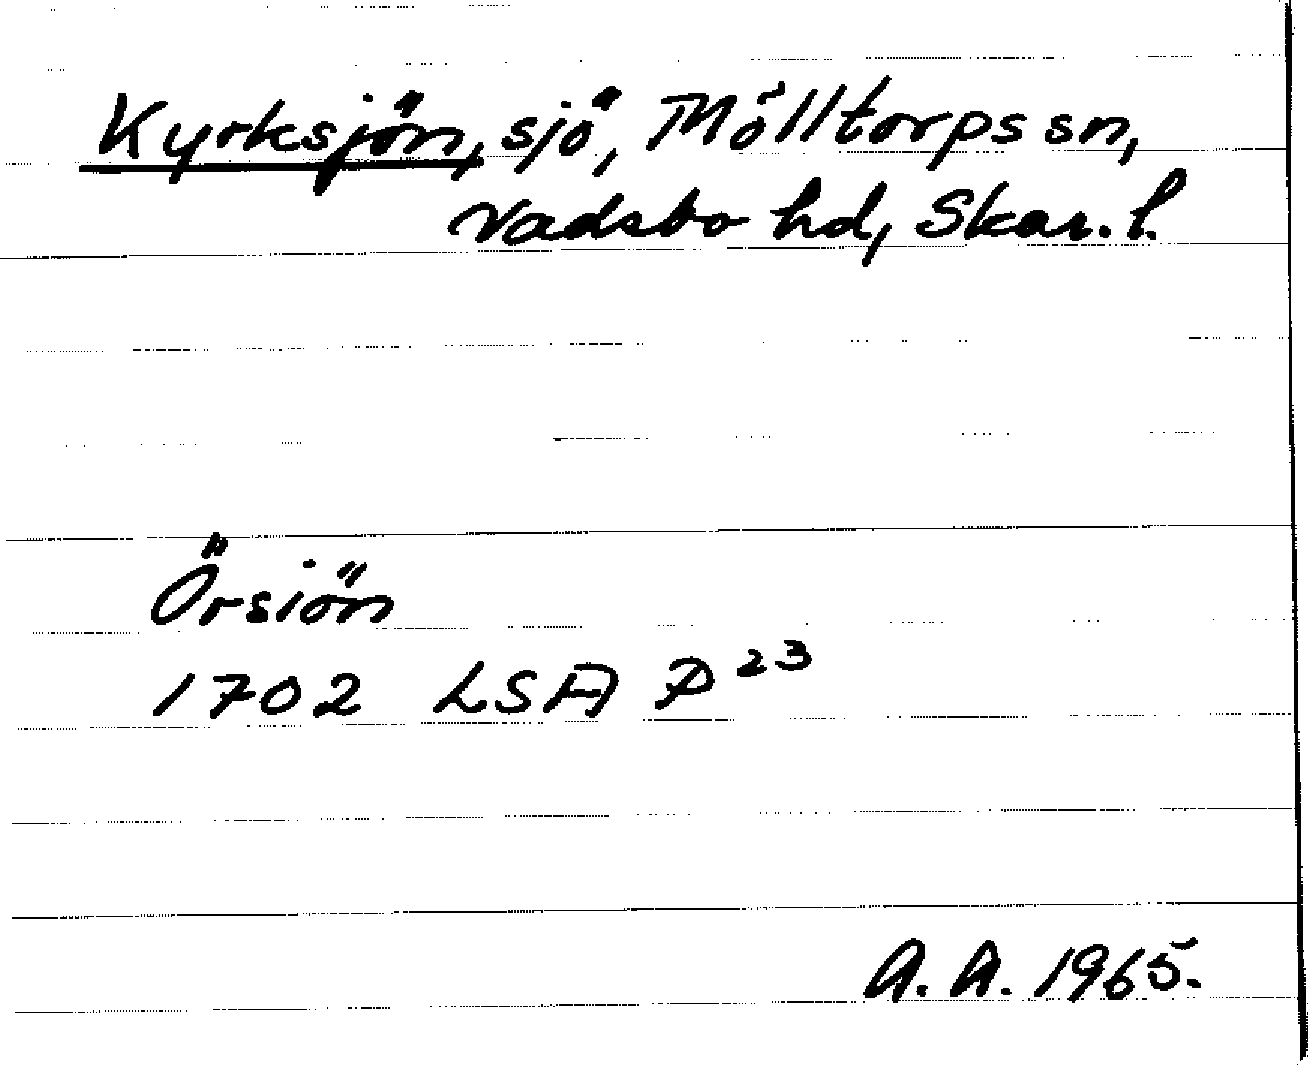 Kyrksjön, sjö, Mölltorps sn,
Vadsbo hd, Skar. l.
Örsiön
1702 LSA P 23
A. A. 1965.